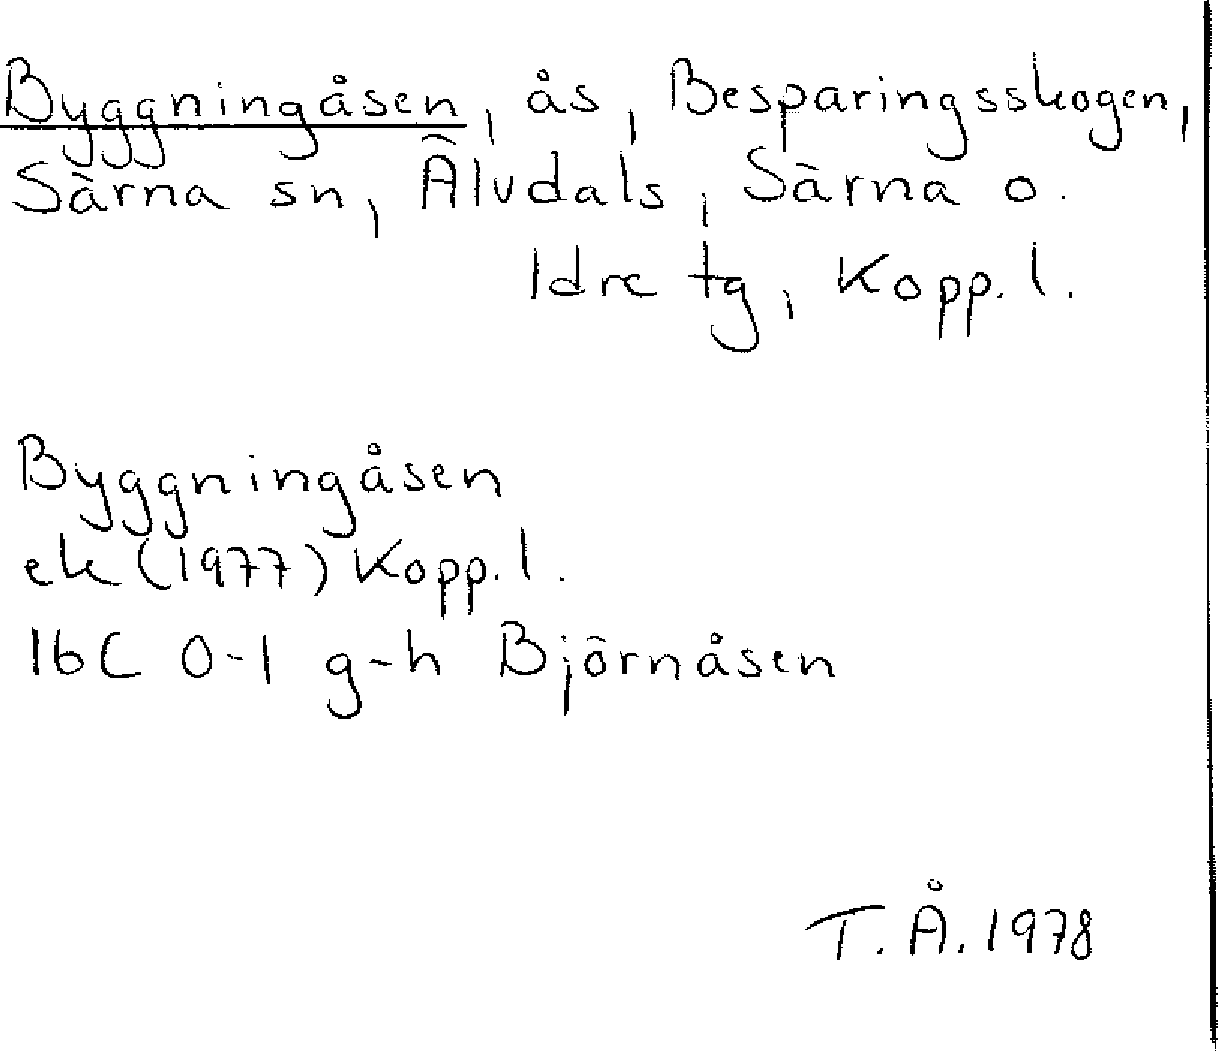 Byggningåsen, ås, Besparingsskogen,
Särna sn, Älvdals, Särna o.
Idre tg, Kopp. l.
Byggningåsen
ek (1977) Kopp. l.
16C 0-1 g-h Björnåsen
T. Å. 1978